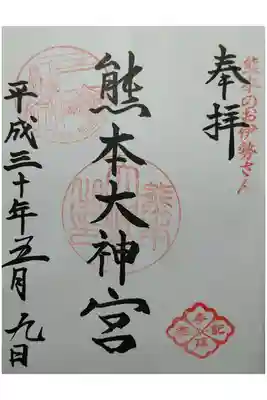 熊本のお伊勢さん
奉拝
熊本大神宮
平成三十年五月九日